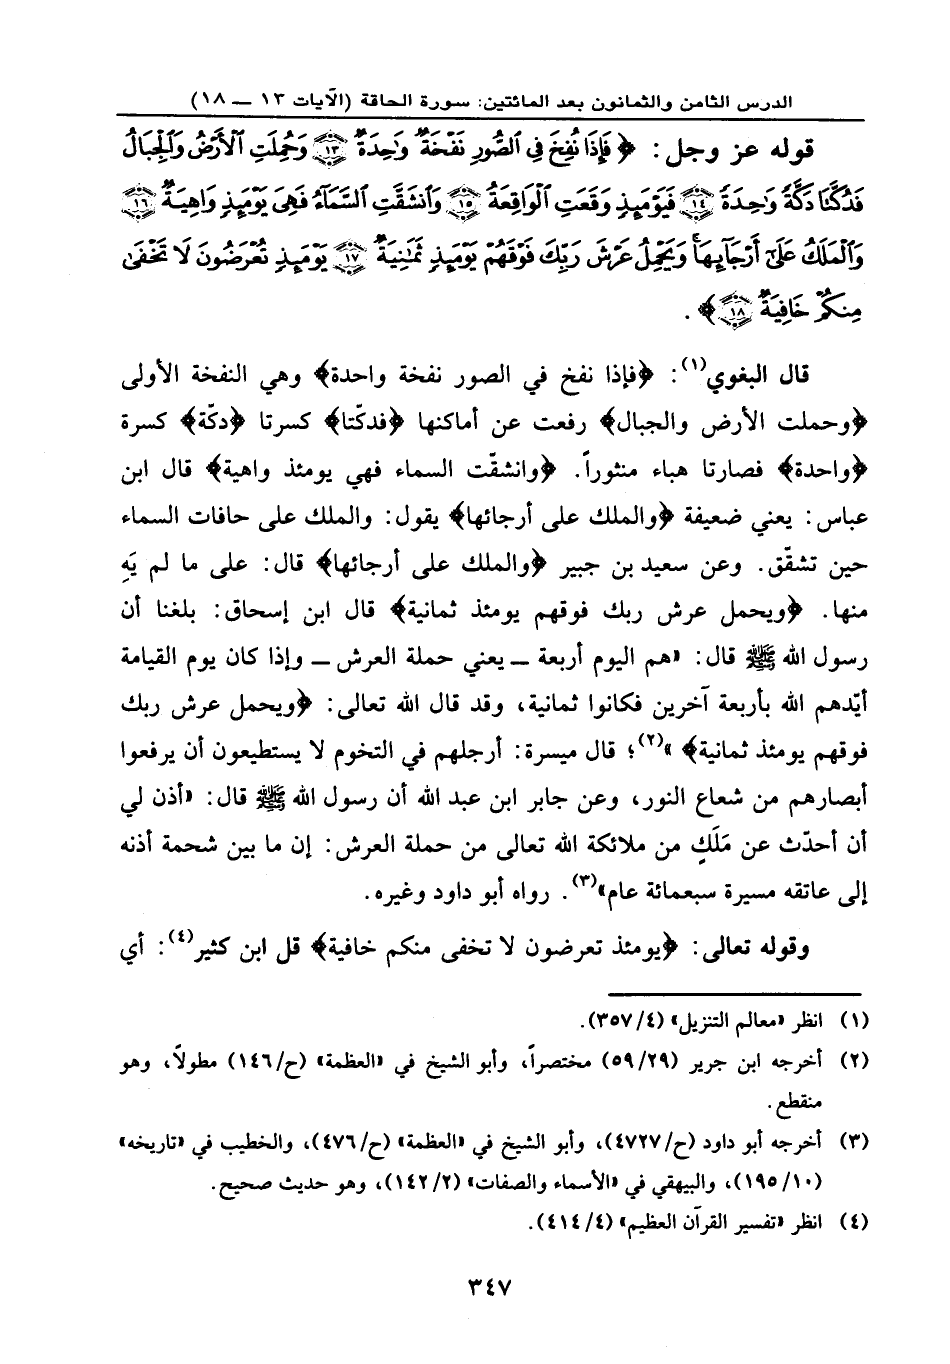 الدرس الثامن والثمانون بعد المائتين: سورة الحاقة (الآيات ١٣ ــ ١٨)
قوله عز وجل: ﴿ فَإِذَا نُفِخَ فِي ٱلصُّورِ نَفْخَةٌ وَٰحِدَةٌ ١٣ وَحُمِلَتِ ٱلْأَرْضُ وَٱلْجِبَالُ
فَدُكَّتَا دَكَّةً وَٰحِدَةً ١٤ فَيَوْمَئِذٍ وَقَعَتِ ٱلْوَاقِعَةُ ١٥ وَٱنشَقَّتِ ٱلسَّمَآءُ فَهِيَ يَوْمَئِذٍ وَاهِيَةٌ ١٦
وَٱلْمَلَكُ عَلَىٰٓ أَرْجَآئِهَا وَيَحْمِلُ عَرْشَ رَبِّكَ فَوْقَهُمْ يَوْمَئِذٍ ثَمَٰنِيَةٌ ١٧ يَوْمَئِذٍ تُعْرَضُونَ لَا تَخْفَىٰ
مِنكُمْ خَافِيَةٌ ١٨ ﴾ .
قال البغوي(١): ﴿فإذا نفخ في الصور نفخة واحدة﴾ وهي النفخة الأولى
﴿وحملت الأرض والجبال﴾ رفعت عن أماكنها ﴿فدكّتا﴾ كسرتا ﴿دكّة﴾ كسرة
﴿واحدة﴾ فصارتا هباء منثوراً. ﴿وانشقّت السماء فهي يومئذ واهية﴾ قال ابن
عباس: يعني ضعيفة ﴿والملك على أرجائها﴾ يقول: والملك على حافات السماء
حين تشقّق. وعن سعيد بن جبير ﴿والملك على أرجائها﴾ قال: على ما لم يَهِ
منها. ﴿ويحمل عرش ربك فوقهم يومئذ ثمانية﴾ قال ابن إسحاق: بلغنا أن
رسول الله ﷺ قال: «هم اليوم أربعة ــ يعني حملة العرش ــ وإذا كان يوم القيامة
أيّدهم الله بأربعة آخرين فكانوا ثمانية، وقد قال الله تعالى: ﴿ويحمل عرش ربك
فوقهم يومئذ ثمانية﴾ »(٢)؛ قال ميسرة: أرجلهم في التخوم لا يستطيعون أن يرفعوا
أبصارهم من شعاع النور، وعن جابر ابن عبد الله أن رسول الله ﷺ قال: «أذن لي
أن أحدّث عن مَلَكٍ من ملائكة الله تعالى من حملة العرش: إن ما بين شحمة أذنه
إلى عاتقه مسيرة سبعمائة عام»(٣). رواه أبو داود وغيره.
وقوله تعالى: ﴿يومئذ تعرضون لا تخفى منكم خافية﴾ قل ابن كثير(٤): أي
(١) انظر «معالم التنزيل» (٣٥٧/٤).
(٢) أخرجه ابن جرير (٥٩/٢٩) مختصراً، وأبو الشيخ في «العظمة» (ح/١٤٦) مطولاً، وهو
منقطع.
(٣) أخرجه أبو داود (ح/٤٧٢٧)، وأبو الشيخ في «العظمة» (ح/٤٧٦)، والخطيب في «تاريخه»
(١٩٥/١٠)، والبيهقي في «الأسماء والصفات» (١٤٢/٢)، وهو حديث صحيح.
(٤) انظر «تفسير القرآن العظيم» (٤١٤/٤).
٣٤٧